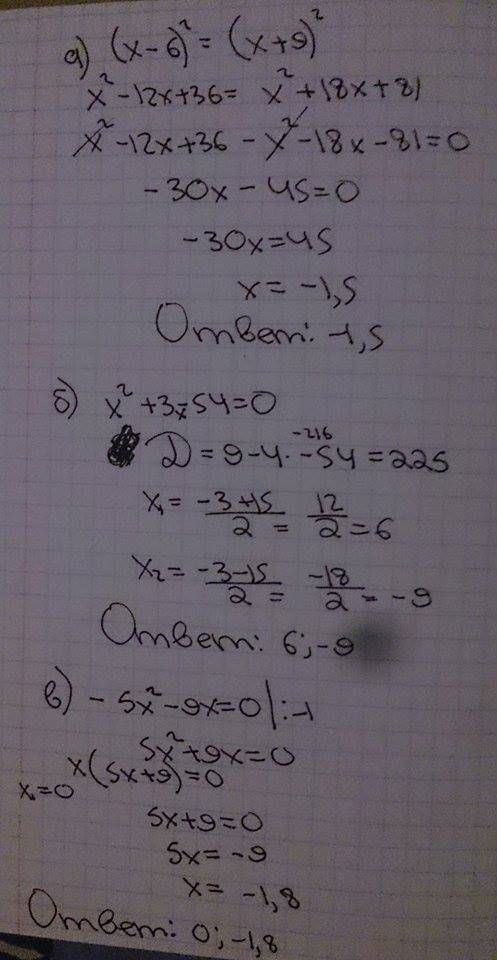 а) (x-6)² = (x+9)²
x²-12x+36 = x²+18x+81
x²-12x+36 - x²-18x-81=0
-30x - 45=0
-30x=45
x= -1,5
Ответ: -1,5
б) x²+3x-54=0
-216
D = 9-4·-54 = 225
x₁ = -3+15/2 = 12/2 = 6
x₂ = -3-15/2 = -18/2 = -9
Ответ: 6; -9
в) -5x²-9x=0 |:-1
5x²+9x=0
x(5x+9)=0
x₁=0
5x+9=0
5x= -9
x= -1,8
Ответ: 0; -1,8